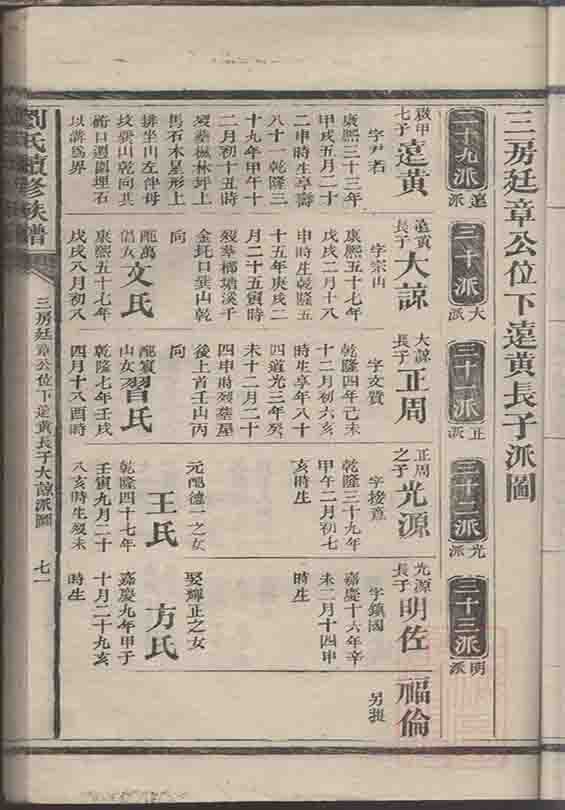 三房廷章公位下遠黃長子派圖
二十九派
遠派
三十派
大派
三十一派
正派
三十二派
光派
三十三派
明派
七子遠黃
字尹若
康熙三十三年
甲戌五月二十
二申時生享壽
八十一乾隆三
十九年甲午十
二月初十丑時
歿葬楓林坪上
馬石木星形上
排坐山左仲母
墳癸山乾向共
以溝為界
遠黃
長子大諒
字宗山
康熙五十七年
戊戌二月十八
申時生乾隆五
十五年庚戌二
月二十五寅時
歿葬榔塘溪千
金坵口巽山乾
向
配萬
倡女文氏
康熙五十七年
戊戌八月初八
大諒
長子正周
字文質
乾隆四年己未
十二月初六亥
時生享年八十
四道光三年癸
未十二月二十
四申時歿葬屋
後上首壬山丙
向
配寰
山女習氏
乾隆七年壬戌
四月十八酉時
正周
之子光源
乾隆三十九年
甲午二月初七
亥時生
元配德一之女
王氏
乾隆四十七年
壬寅九月二十
八亥時生歿未
光源
長子明佐
字鎮國
嘉慶十六年辛
未二月十四申
時生
娶輝正之女
方氏
嘉慶九年甲子
十月二十九亥
時生
福倫
另提
劉氏續修族譜
三房廷章公位下遠黃長子大諒派圖
七一